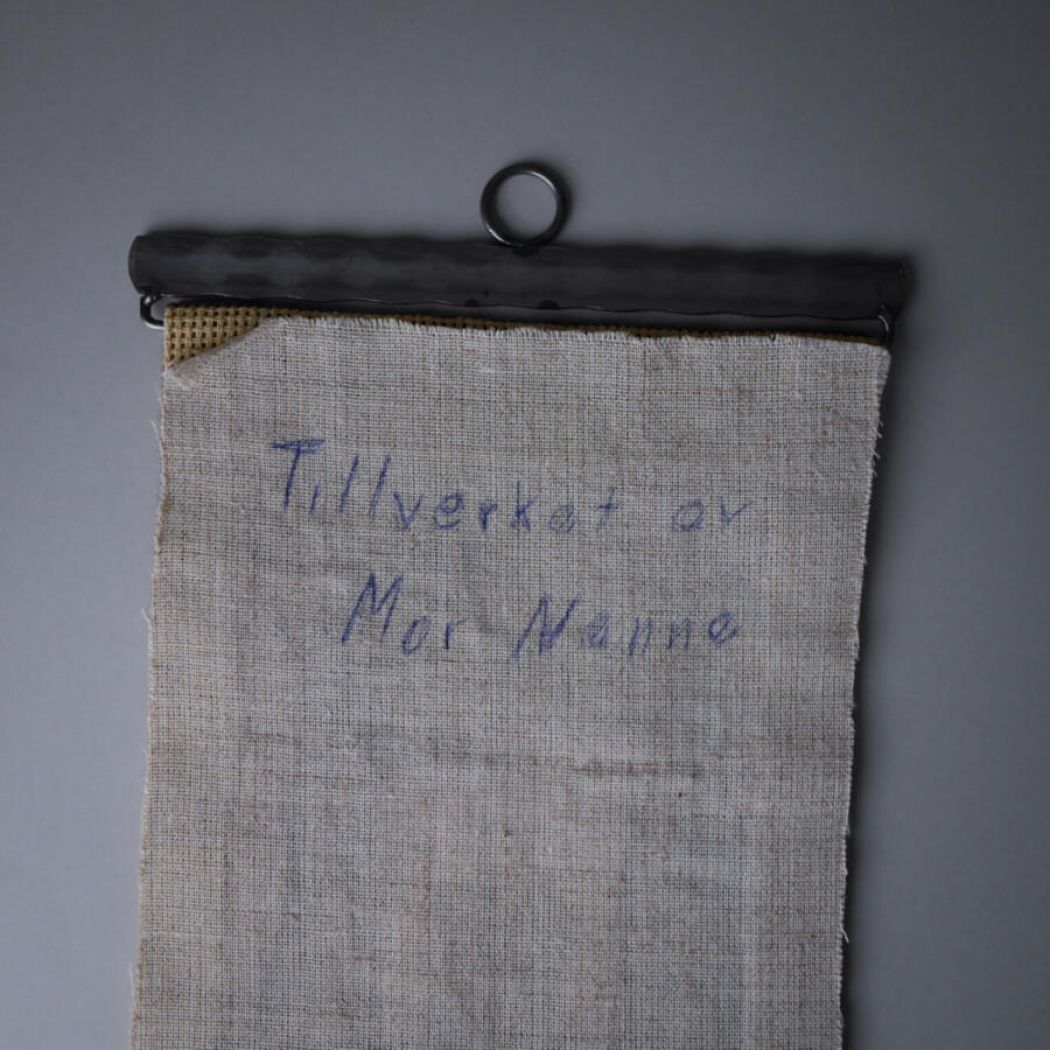 Tillverkat av
Mor Nanna